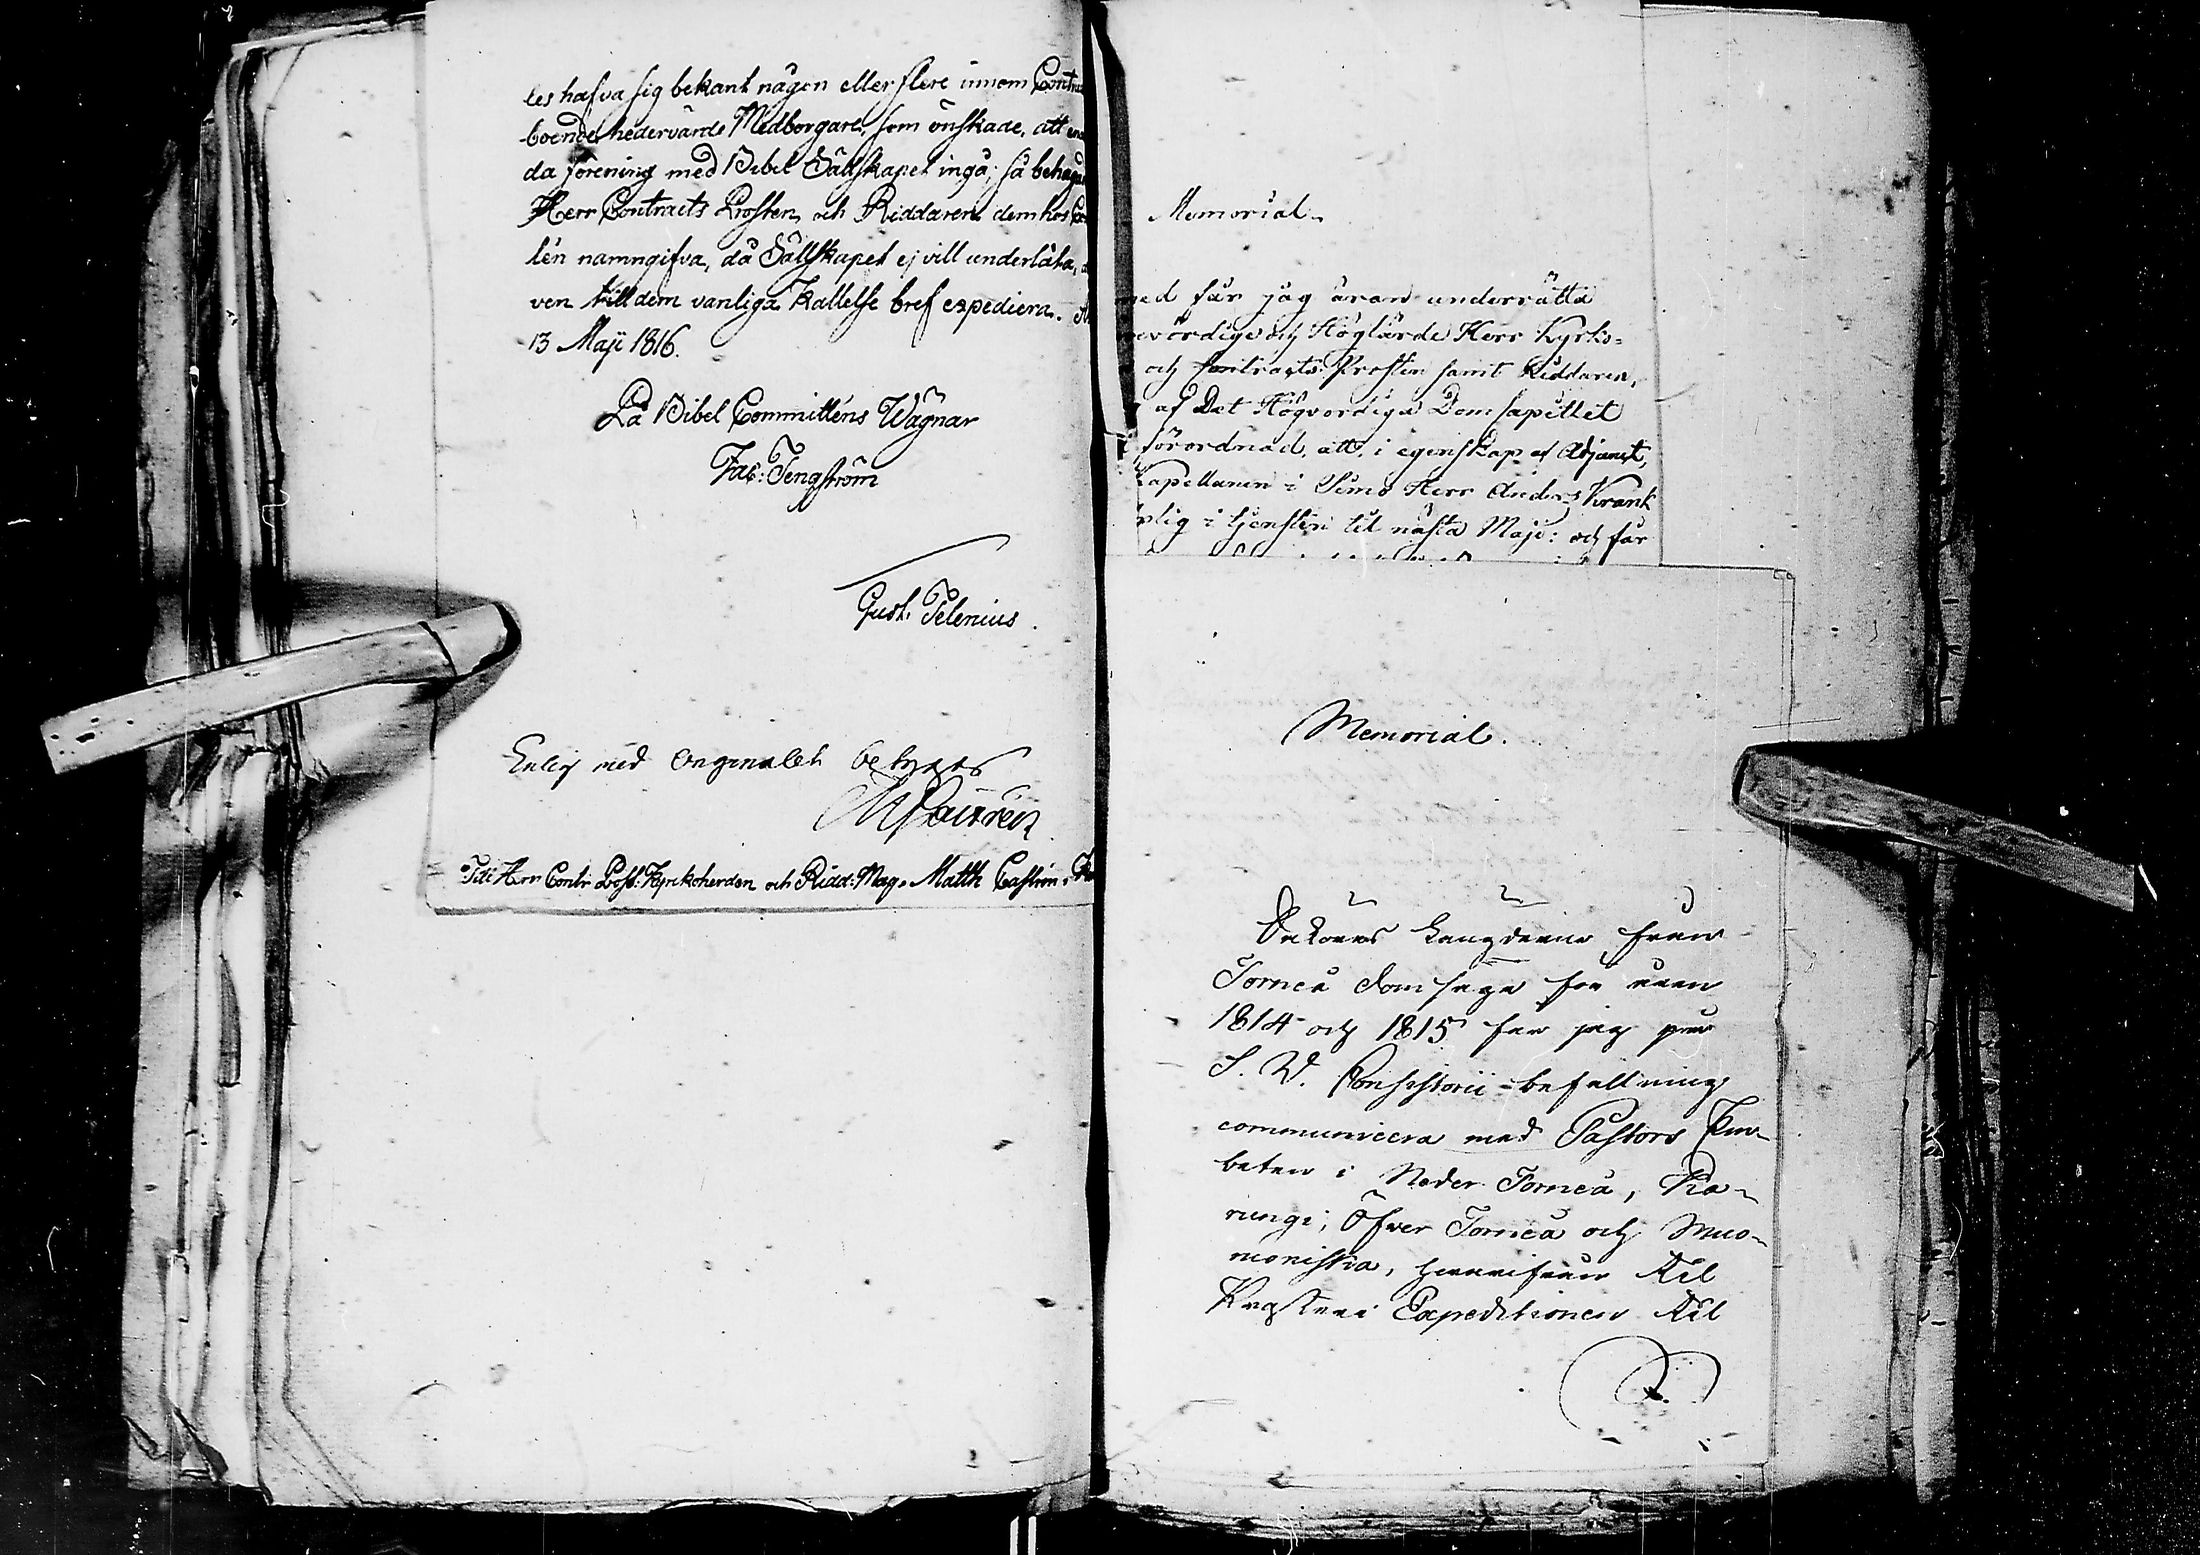 les hafva sig bekant någon eller flere innom Contra
boende hedervärde Medborgare, som önskade, att
da förening med Bibel Sällskapet ingå; så behaga
Herr Contracts Prosten och Riddaren dem hos
lén namngifva, då Sällskapet ej vill underlåta,
ven till dem vanliga Kallelse bref expediera.
13 Maji 1816.
På Bibel Committéns Wägnar
Jac: Tengström
Gust. Telenius
Enligt med Originalet betygar
M Castrén
Till Herr Contr Prost: Kyrkoherden och Ridd: Mag. Matth Castrén,
Memorial.
med får jag äran underrätta
vördige och Höglärde Herr Kyrko=
och Contracts Prosten samt Riddaren,
af Det Högvördiga Dom Capitlet
förordnad, att, i egenskap af Adjunct,
Capellanen i Simo Herr Anders Krank
rlig i tjensten til nästa Maji: och får
Memorial.
Sakörens Längderne från
Torneå domsaga för åren
1814 och 1815 får jag på
S. V. Consistorii befallning
communicera med Pastors Em-
beten i Neder Torneå, Ka-
rungi, Öfver Torneå och Muo-
nioniska, hvarifrån til
Expeditionen til